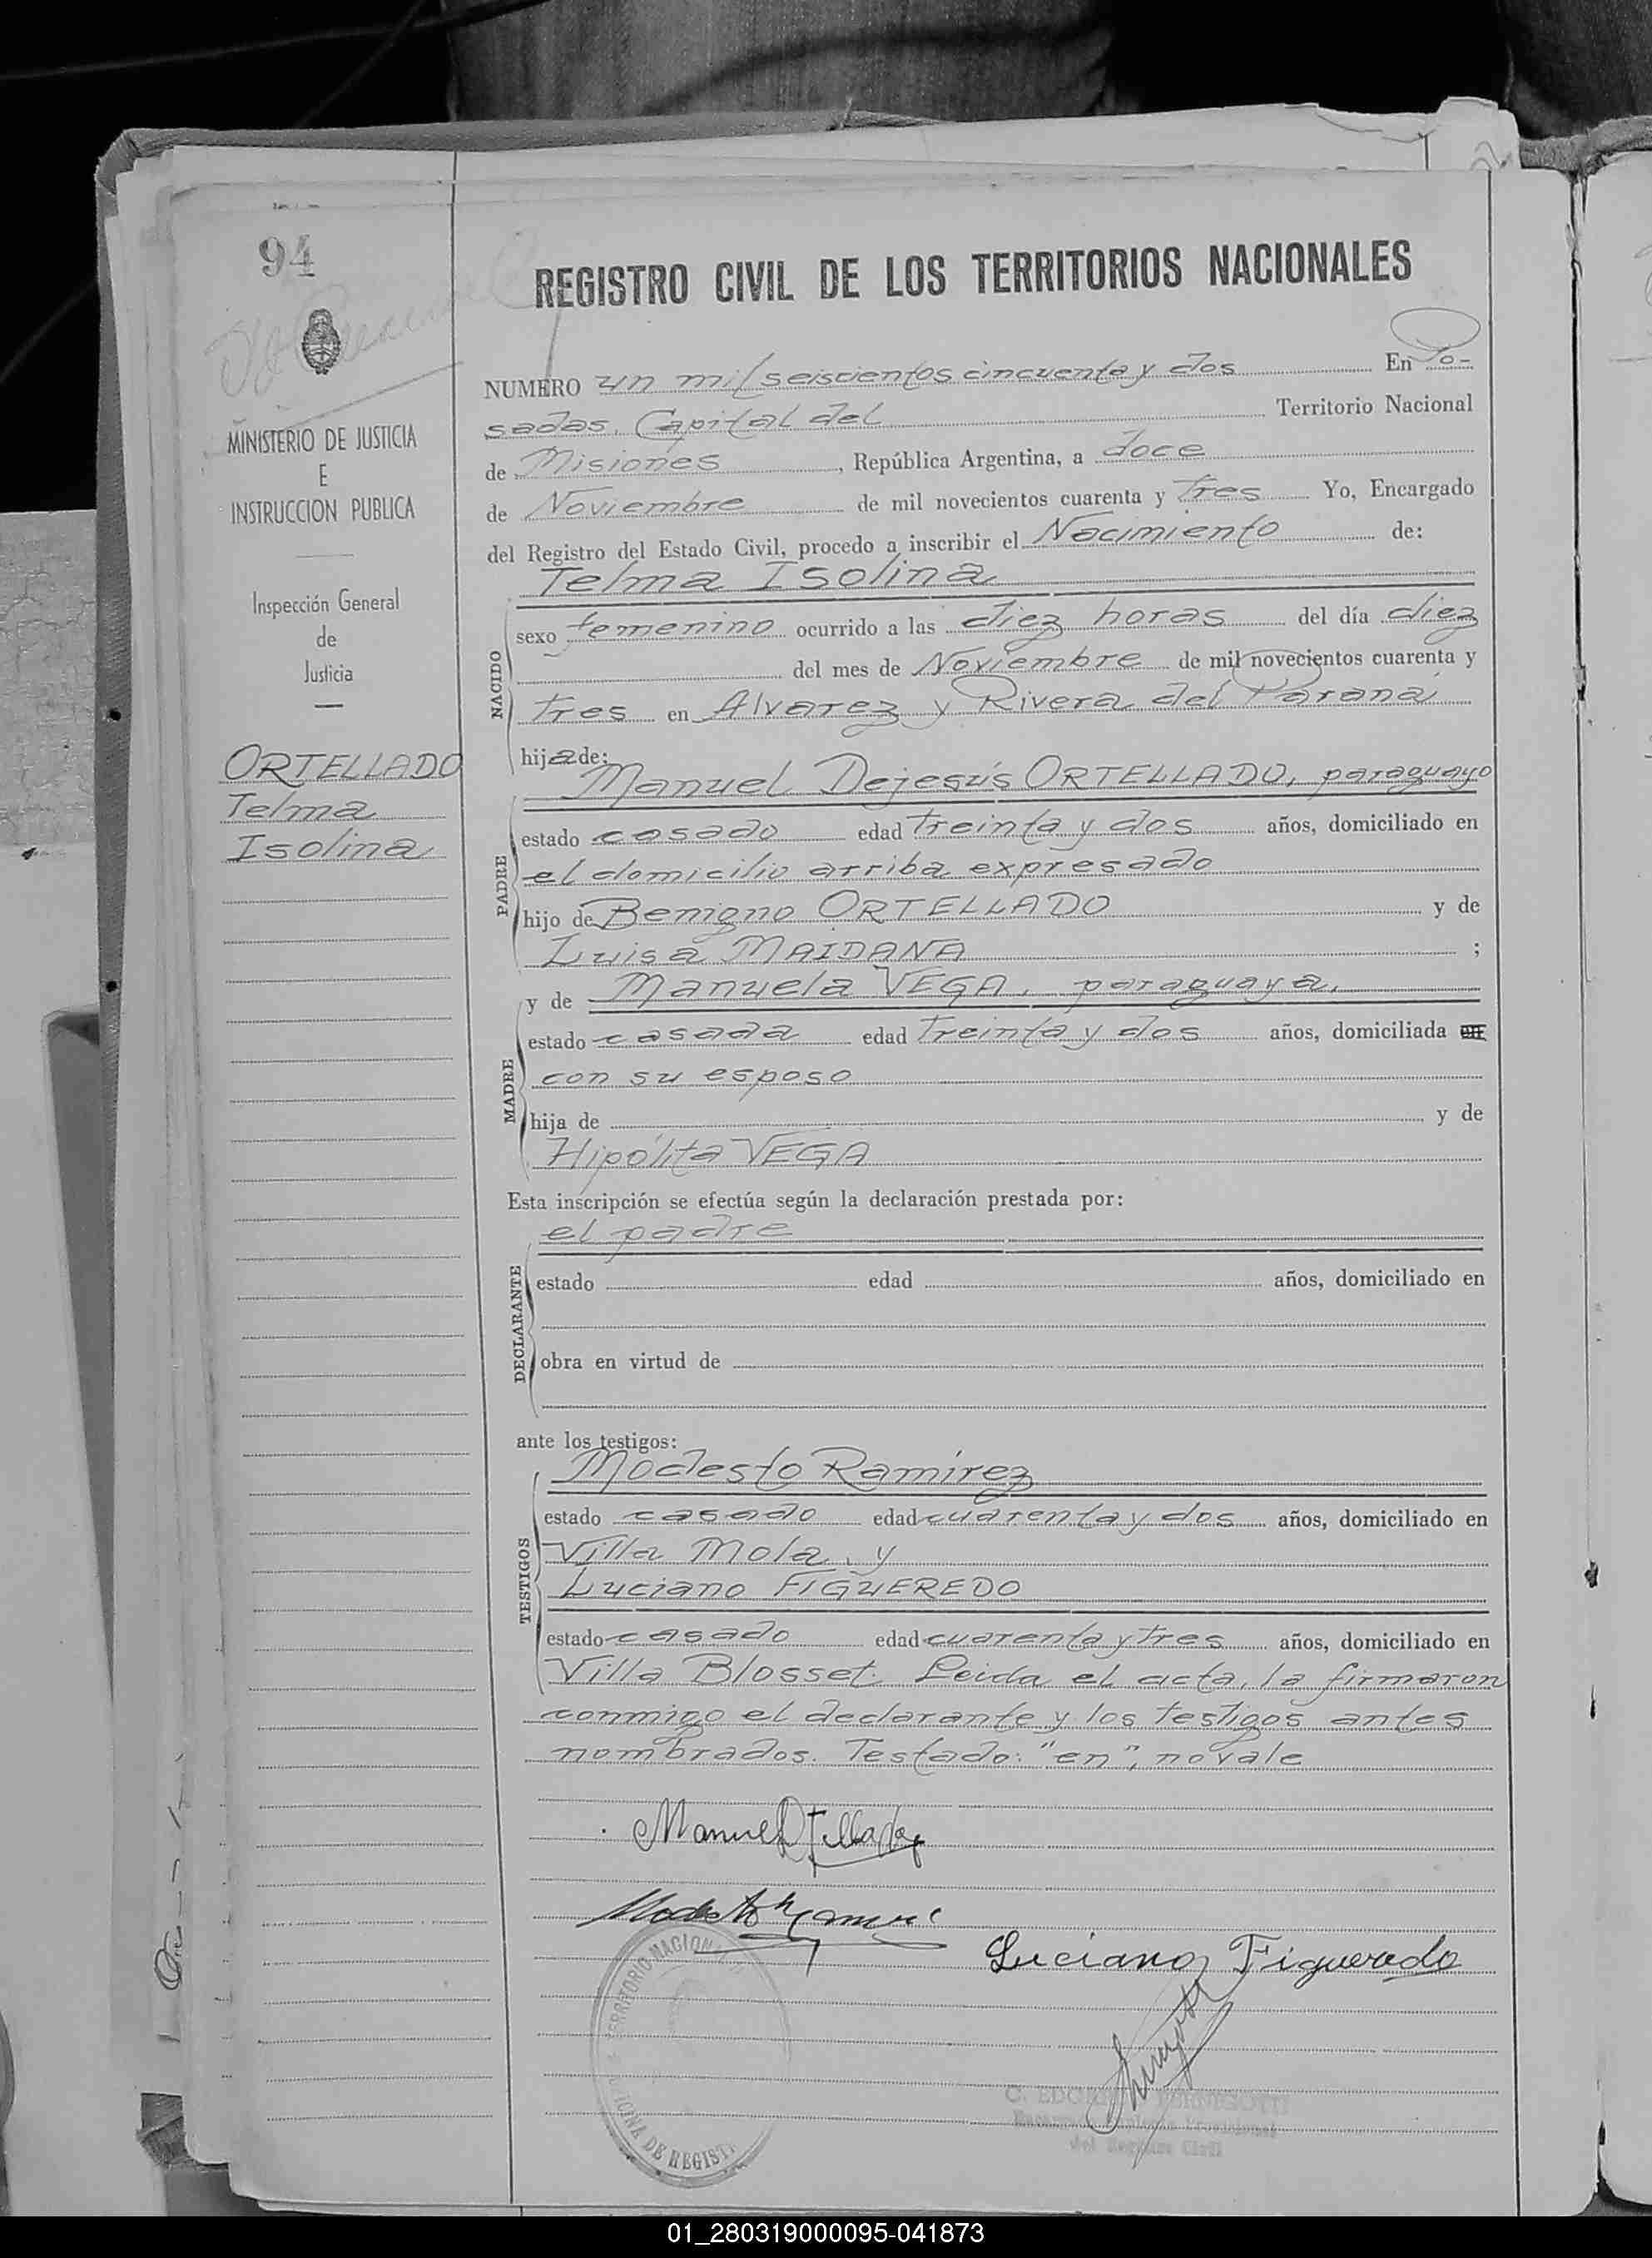 94
REGISTRO CIVIL DE LOS TERRITORIOS NACIONALES
MINISTERIO DE JUSTICIA
E
INSTRUCCION PUBLICA
Inspección General
de
Justicia
ORTELLADO
Telma
Isolina
NUMERO un mil seiscientos cincuenta y dos En Po-
sadas, Capital del Territorio Nacional
de Misiones, República Argentina, a doce
de Noviembre de mil novecientos cuarenta y tres Yo, Encargado
del Registro del Estado Civil, procedo a inscribir el Nacimiento de:
Telma Isolina
NACIDO
sexo femenino ocurrido a las diez horas del día diez
del mes de Noviembre de mil novecientos cuarenta y
tres en Alvarez y Rivera del Paraná
hija de:
Manuel Dejesús ORTELLADO, paraguayo
PADRE
estado casado edad treinta y dos años, domiciliado en
el domicilio arriba expresado
hijo de Benigno ORTELLADO y de
Luisa MAIDANA ;
y de Manuela VEGA, paraguaya,
MADRE
estado casada edad treinta y dos años, domiciliada en
con su esposo
hija de y de
Hipólita VEGA
Esta inscripción se efectúa según la declaración prestada por:
el padre
DECLARANTE
estado edad años, domiciliado en
obra en virtud de
ante los testigos:
Modesto Ramírez
TESTIGOS
estado casado edad cuarenta y dos años, domiciliado en
Villa Mola, y
Luciano FIGUEREDO
estado casado edad cuarenta y tres años, domiciliado en
Villa Blosset. Leida el acta, la firmaron
conmigo el declarante y los testigos antes
nombrados. Testado: "en", no vale
Manuel Ortellado
Modesto Ramirez
Luciano Figueredo
TERRITORIO NACIONAL
OFICINA DE REGIST
del Registro Civil
01_280319000095-041873